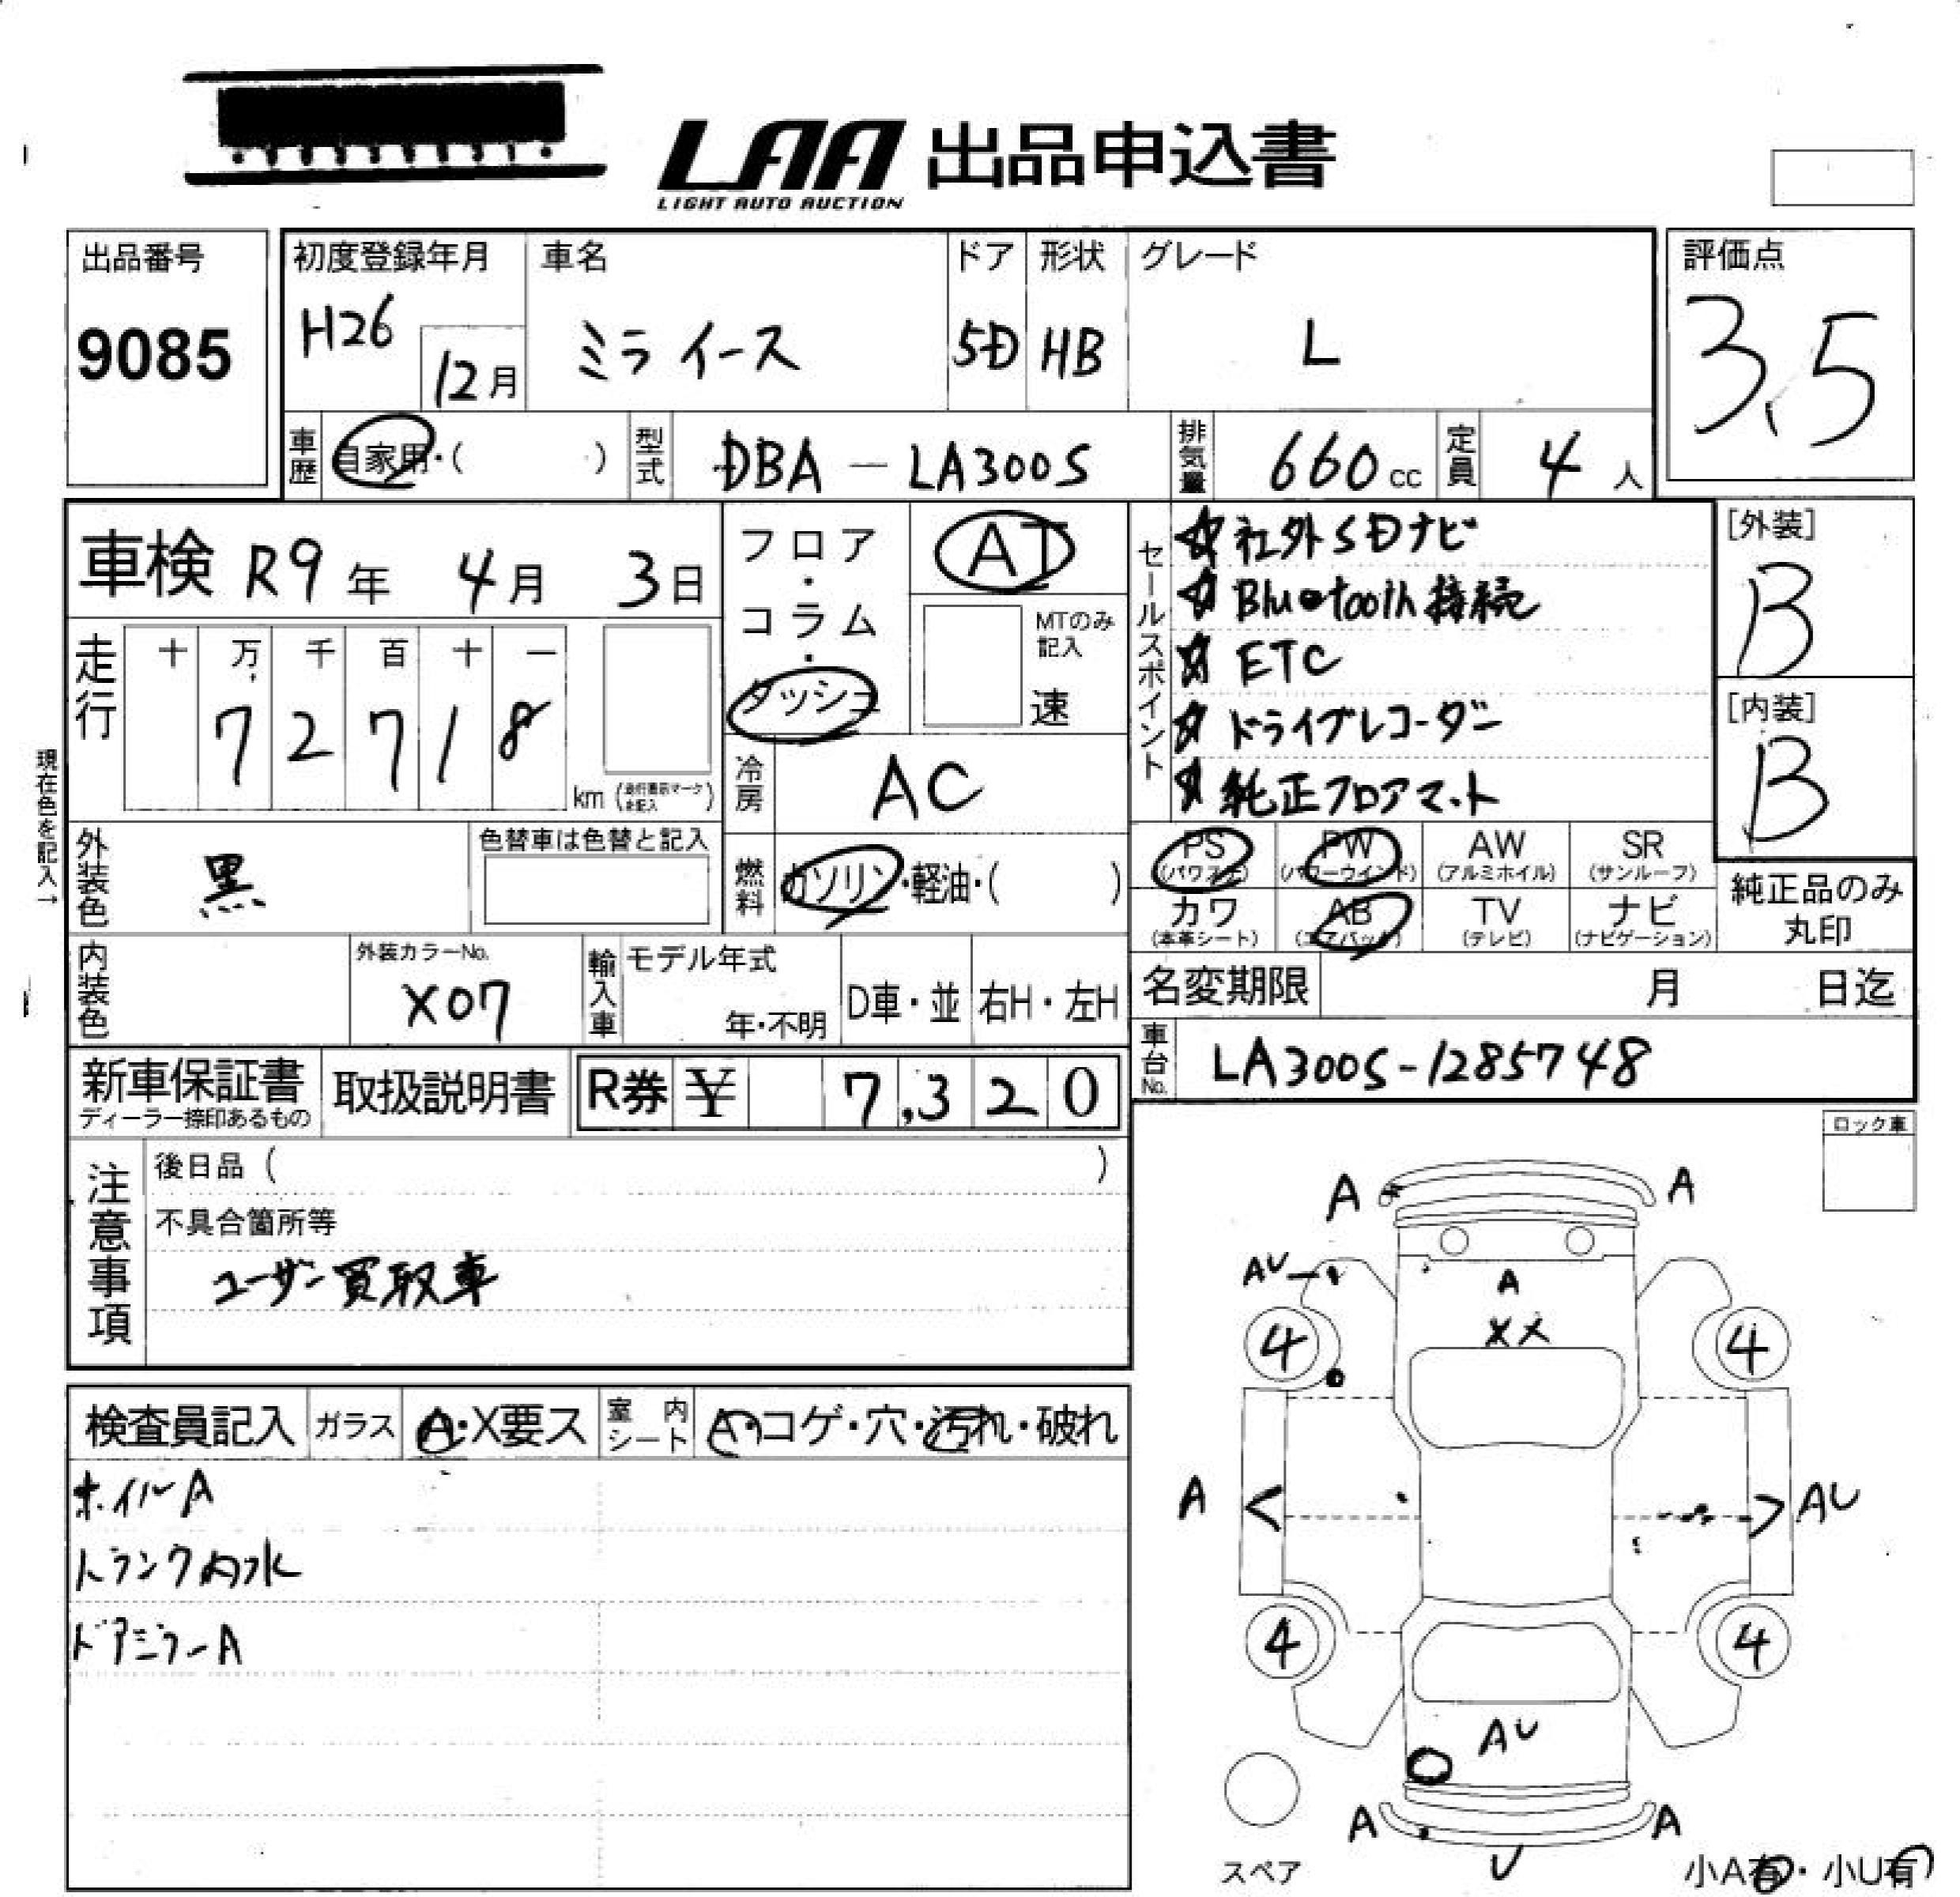 LAA 出品申込書
LIGHT AUTO AUCTION
出品番号
9085
初度登録年月
H26
12月
車名
ミラ イース
ドア
5D
形状
HB
グレード
L
評価点
3.5
車歴
自家用・( )
型式
DBA-LA300S
排気量
660cc
定員
4人
車検 R9年 4月 3日
走行
十 万 千 百 十 一
7 2 7 1 8
km (走行表示マークを記入)
フロア・コラム・ダッシュ
AT
MTのみ記入
速
冷房
AC
燃料
ガソリン・軽油・( )
セールスポイント
☆社外SDナビ
☆Bluetooth接続
☆ETC
☆ドライブレコーダー
☆純正フロアマット
[外装]
B
[内装]
B
PS (パワステ)
PW (パワーウインド)
AW (アルミホイル)
SR (サンルーフ)
カワ (本革シート)
AB (エアバッグ)
TV (テレビ)
ナビ (ナビゲーション)
純正品のみ丸印
現在色を記入→
外装色
黒
色替車は色替と記入
内装色
外装カラーNo.
X07
輸入車
モデル年式
年・不明
D車・並
右H・左H
名変期限
月 日迄
車台No.
LA300S-1285748
新車保証書
ディーラー捺印あるもの
取扱説明書
R券 ¥ 7,320
注意事項
後日品 ( )
不具合箇所等
ユーザー買取車
ロック車
検査員記入
ガラス
A・X要ス
室内シート
A・コゲ・穴・汚れ・破れ
ホイルA
トランク内水
ドアミラーA
A A
AU
A
XX
4 4
A AU
4 4
AU
A A
U
スペア
小A有・小U有